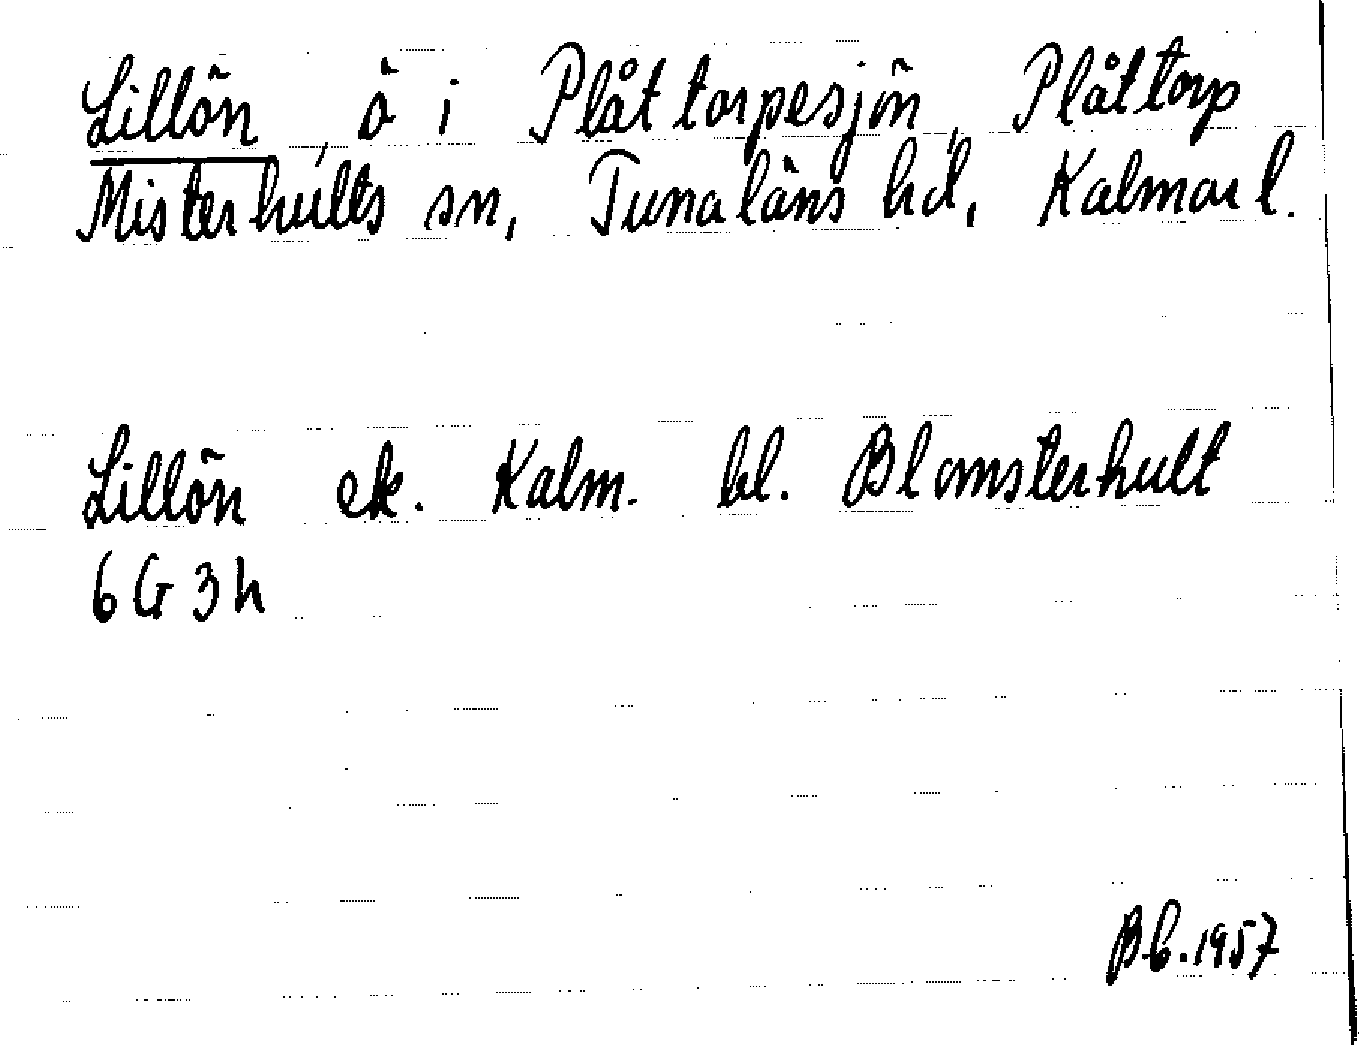 Lillön, ö i Plåttorpesjön, Plåttorp
Misterhults sn, Tunaläns hd, Kalmar l.
Lillön ek. Kalm. bl. Blomsterhult
6G3h
Bb. 1957